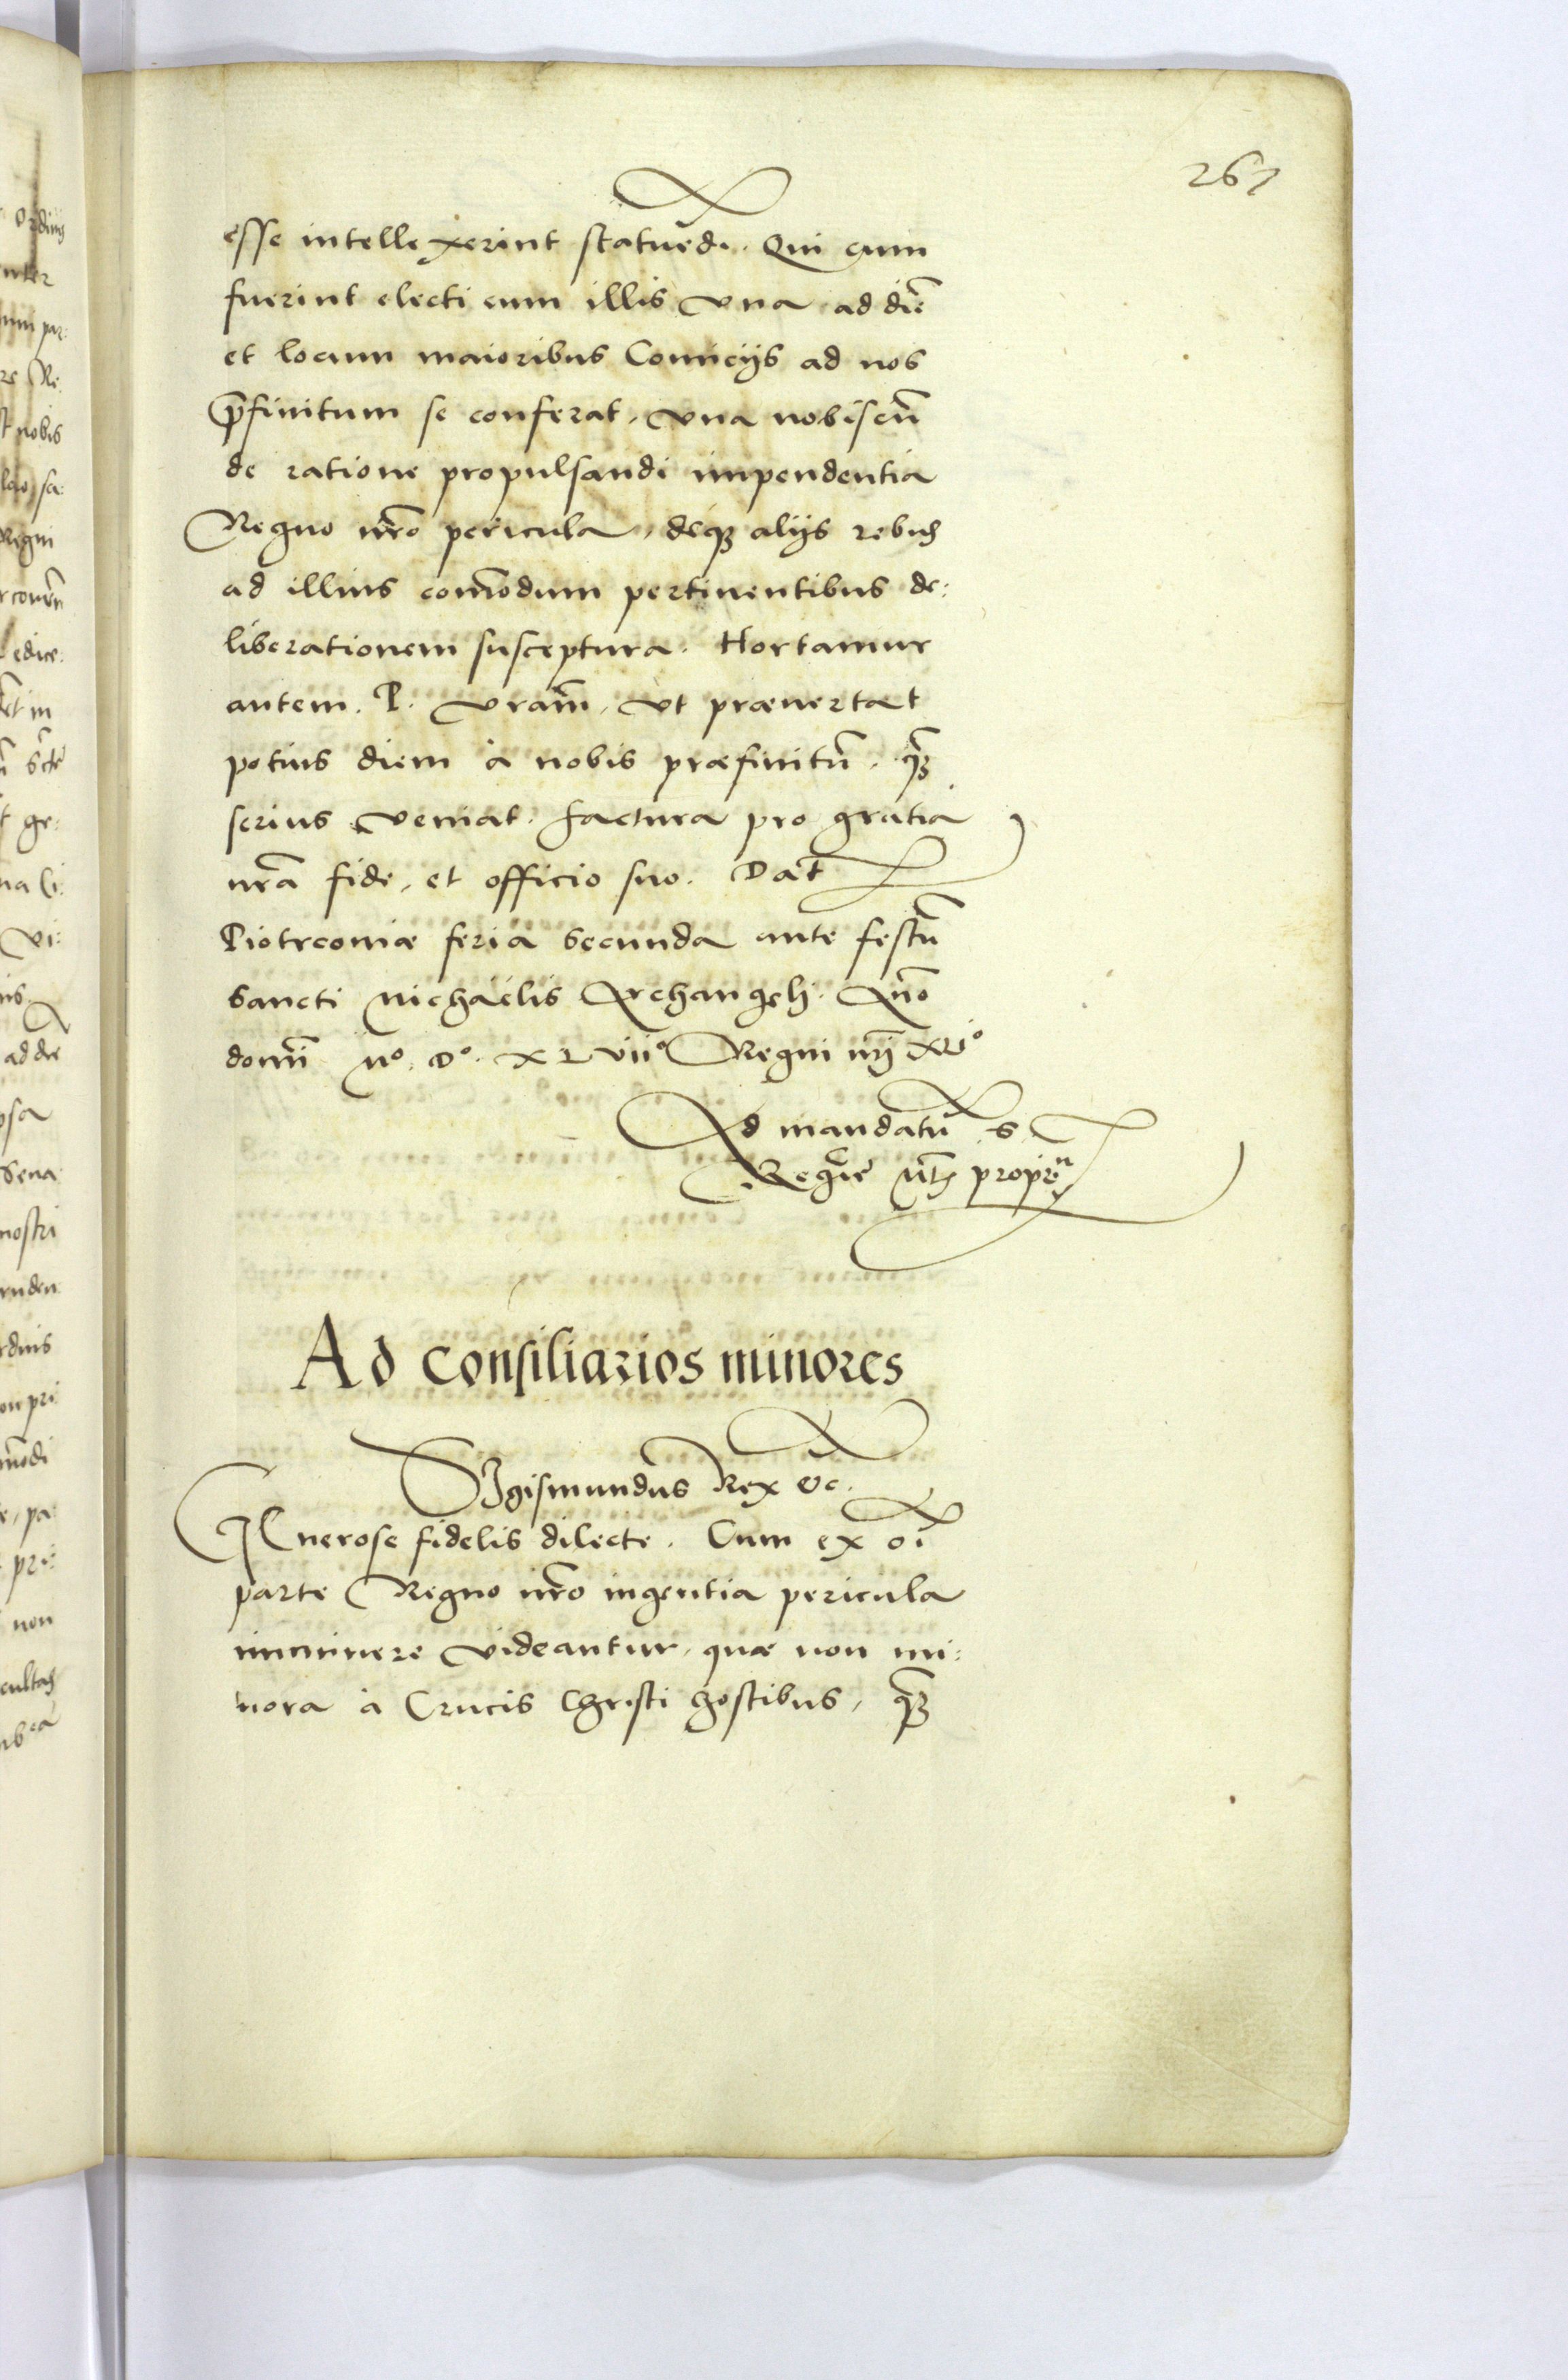 267
esse intellexerint statuēdi. Qui cum
fuerint electi cum illis vna ad diē
et locum maioribus Comicijs ad nos
p̄finitum se conferat, vna nobiscū
de ratione propulsandi impendentia
Regno nr̄o pericula, deq₃ alijs rebus
ad illius com̄odum pertinentibus de:
liberationem susceptura. Hortamur
autem. P. vram̄, vt præuertat
potius diem à nobis præfinitū, q̄₃
serius veniat. factura pro gratia
nr̄a fide, et officio suo. Dat̄
Piotrconiæ feria secunda ante festū
Sancti Michaelis Archangeli. Anō
domī Mº. Dº. XLviiº Regni nr̄j XLiº
Ad mandatū S
Regiē Mt̄s propr̄
Ad consiliarios minores
SIgismundus Rex &c.
GEnerose fidelis dilecte. Cum ex oī
parte Regno nr̄o ingentia pericula
imminere videantur, quæ non mi:
nora à Crucis Christi hostibus, q̄₃